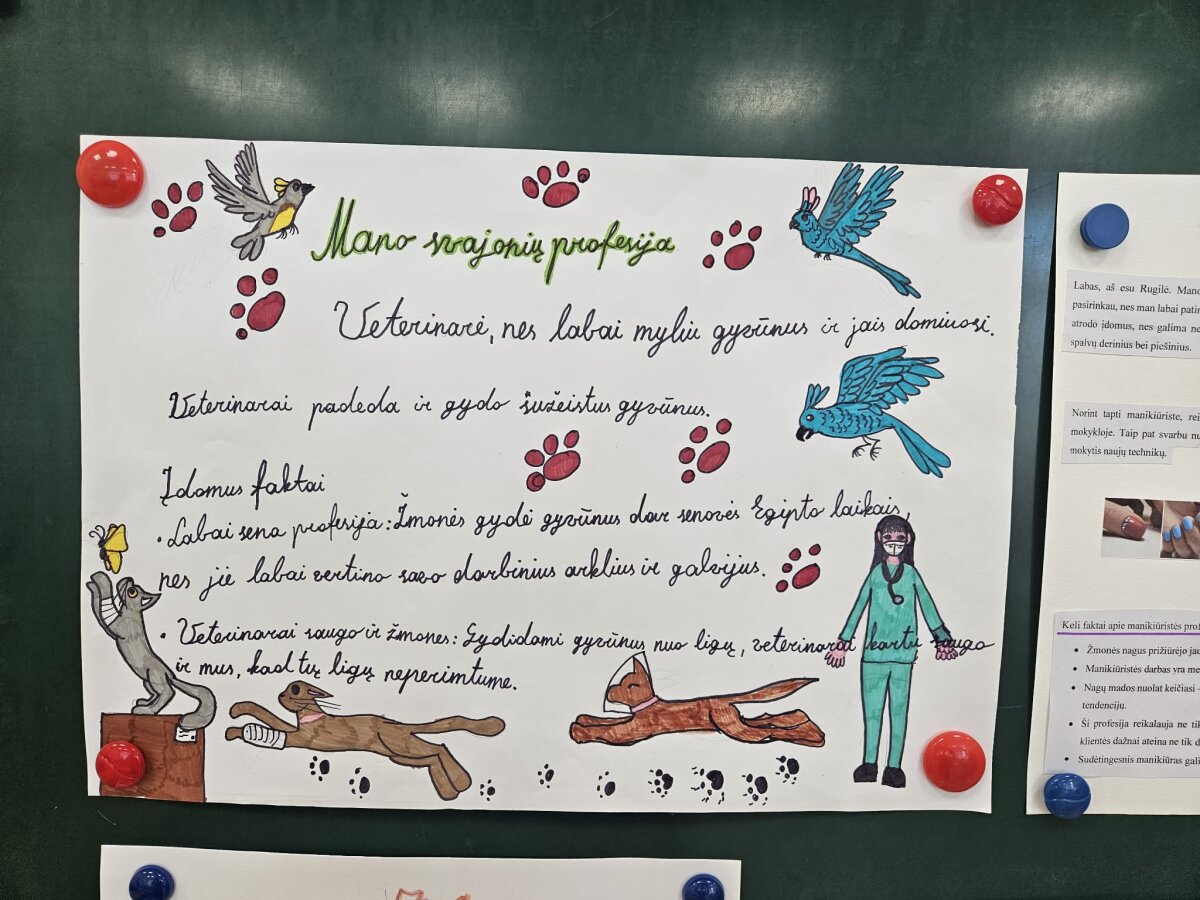 Mano svajonių profesija
Veterinarė, nes labai myliu gyvūnus ir jais domiuosi.
Veterinarai padeda ir gydo sužeistus gyvūnus.
Įdomus faktai
• Labai sena profesija: Žmonės gydė gyvūnus dar senovės Egipto laikais,
nes jie labai vertino savo darbinius arklius ir galvijus.
• Veterinarai saugo ir žmones: Gydidami gyvūnus nuo ligų, veterinarai kartu saugo
ir mus, kad tų ligų neperimtume.
Labas, aš esu Rugilė. Mano
pasirinkau, nes man labai patin
atrodo įdomus, nes galima ne
spalvų derinius bei piešinius.
Norint tapti manikiūriste, rei
mokykloje. Taip pat svarbu nu
mokytis naujų technikų.
Keli faktai apie manikiūristės prof
• Žmonės nagus prižiūrėjo jau
• Manikiūristės darbas yra me
• Nagų mados nuolat keičiasi
tendencijų.
• Ši profesija reikalauja ne tik
klientės dažnai ateina ne tik d
• Sudėtingesnis manikiūras gali